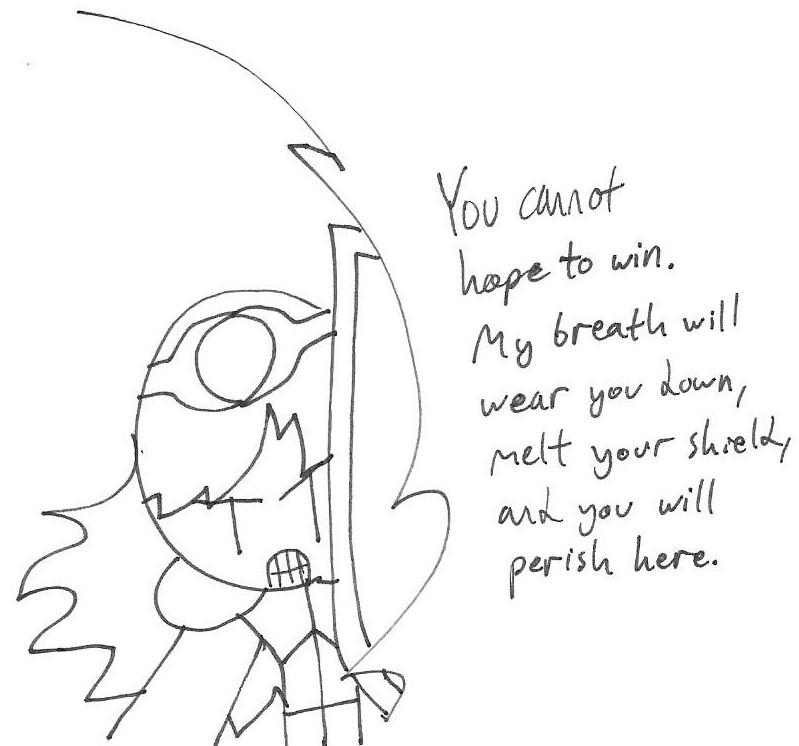 You cannot
hope to win.
My breath will
wear you down,
melt your shield,
and you will
perish here.